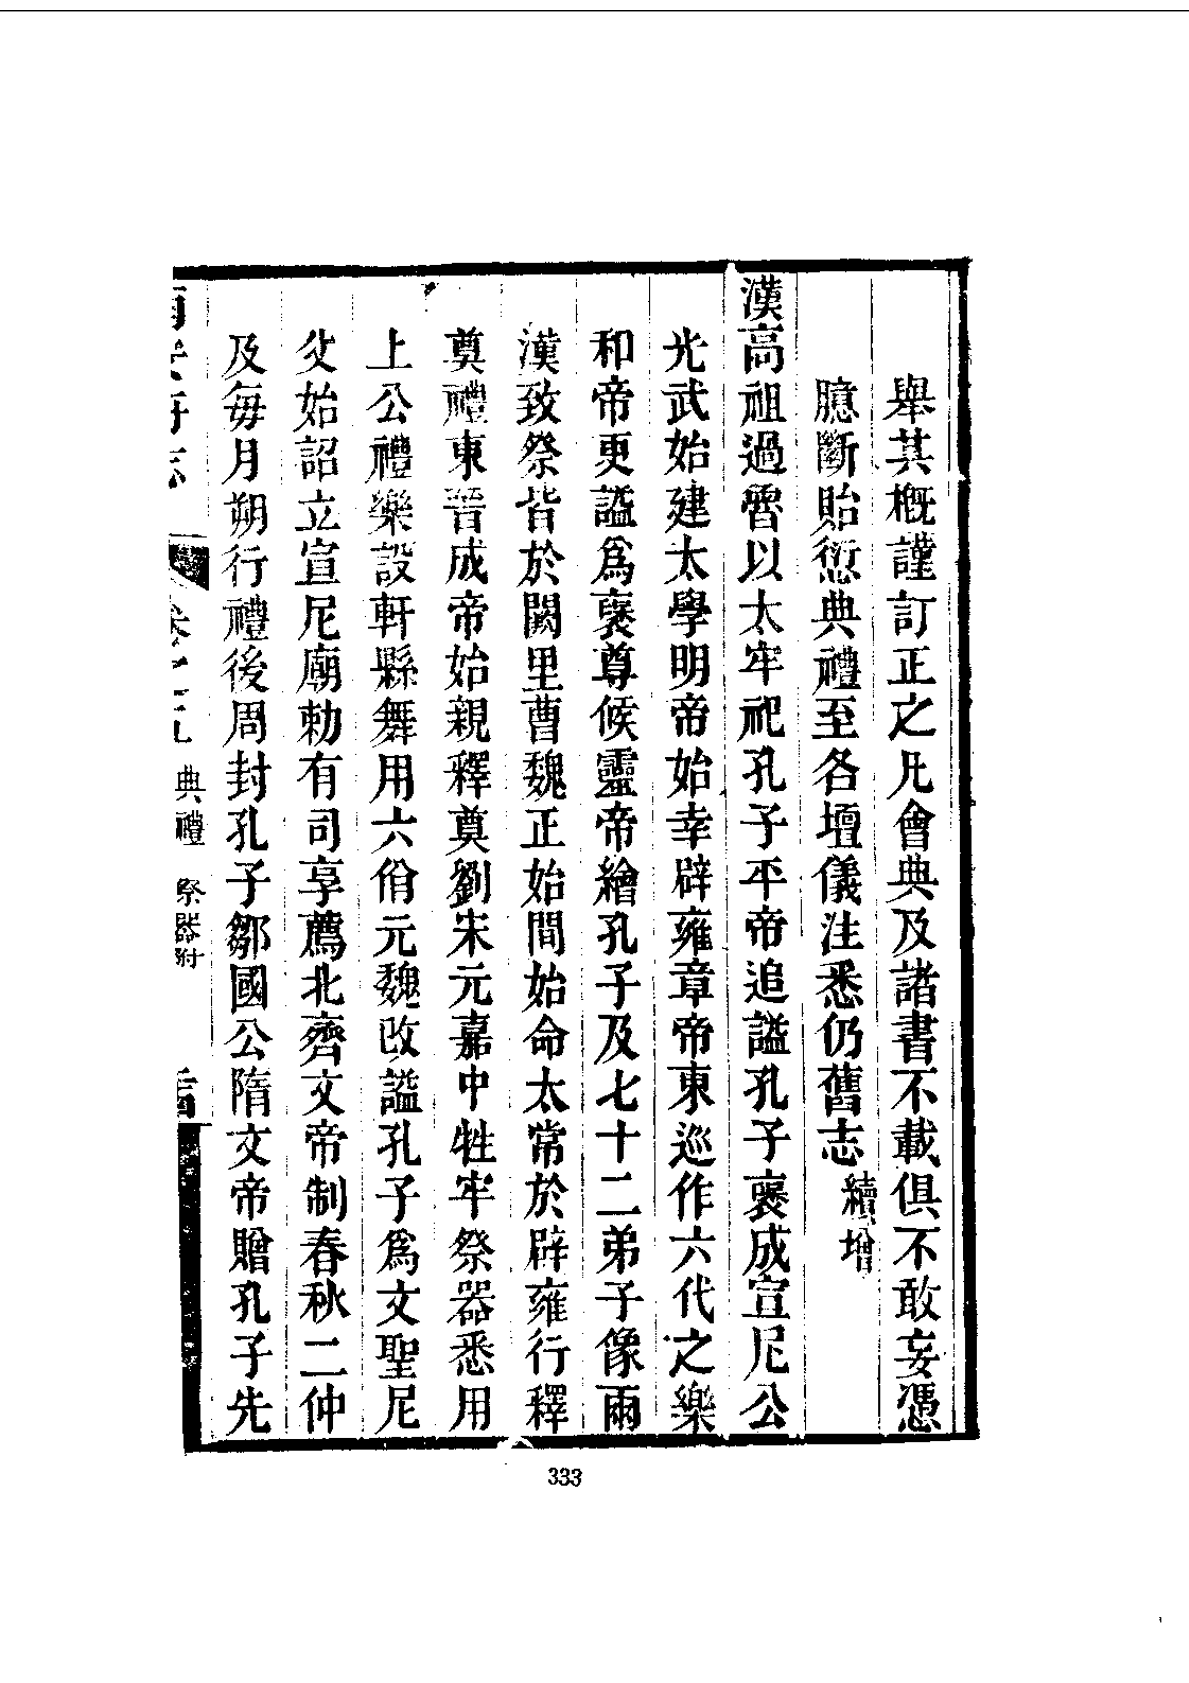 舉其槪謹訂正之凡會典及諸書不載俱不敢妄憑
臆斷貽愆典禮至各壇儀注悉仍舊志續增
漢高祖過魯以太牢祀孔子平帝追謚孔子褒成宣尼公
光武始建太學明帝始幸辟雍章帝東巡作六代之樂
和帝更謚爲褒尊候靈帝繪孔子及七十二弟子像兩
漢致祭皆於闕里曹魏正始間始命太常於辟雍行釋
奠禮東晉成帝始親釋奠劉宋元嘉中牲牢祭器悉用
上公禮樂設軒縣舞用六佾元魏改謚孔子爲文聖尼
父始詔立宣尼廟勅有司享薦北齊文帝制春秋二仲
及每月朔行禮後周封孔子鄒國公隋文帝贈孔子先
典禮 祭器附
333